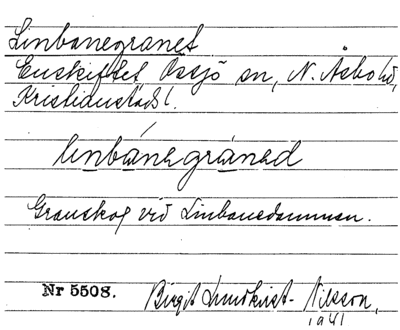 Linbanegranet
Enskiftet Össjö sn, N. Åsbo hd,
Kristianstads l.
linbánegránad
Granskog vid Linbanedammen.
Nr 5508. Birgit Lundkvist-Nilsson,
1941